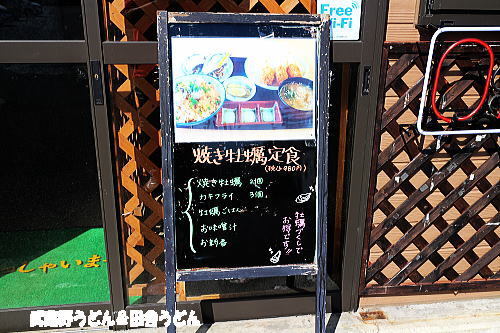 Free
Wi-Fi
焼き牡蠣定食
(税込980円)
焼き牡蠣 2個
カキフライ 3個
牡蠣ごはん
お味噌汁
お新香
牡蠣づくしで
お得です!!
しゃいま
武蔵野うどん&田舎うどん